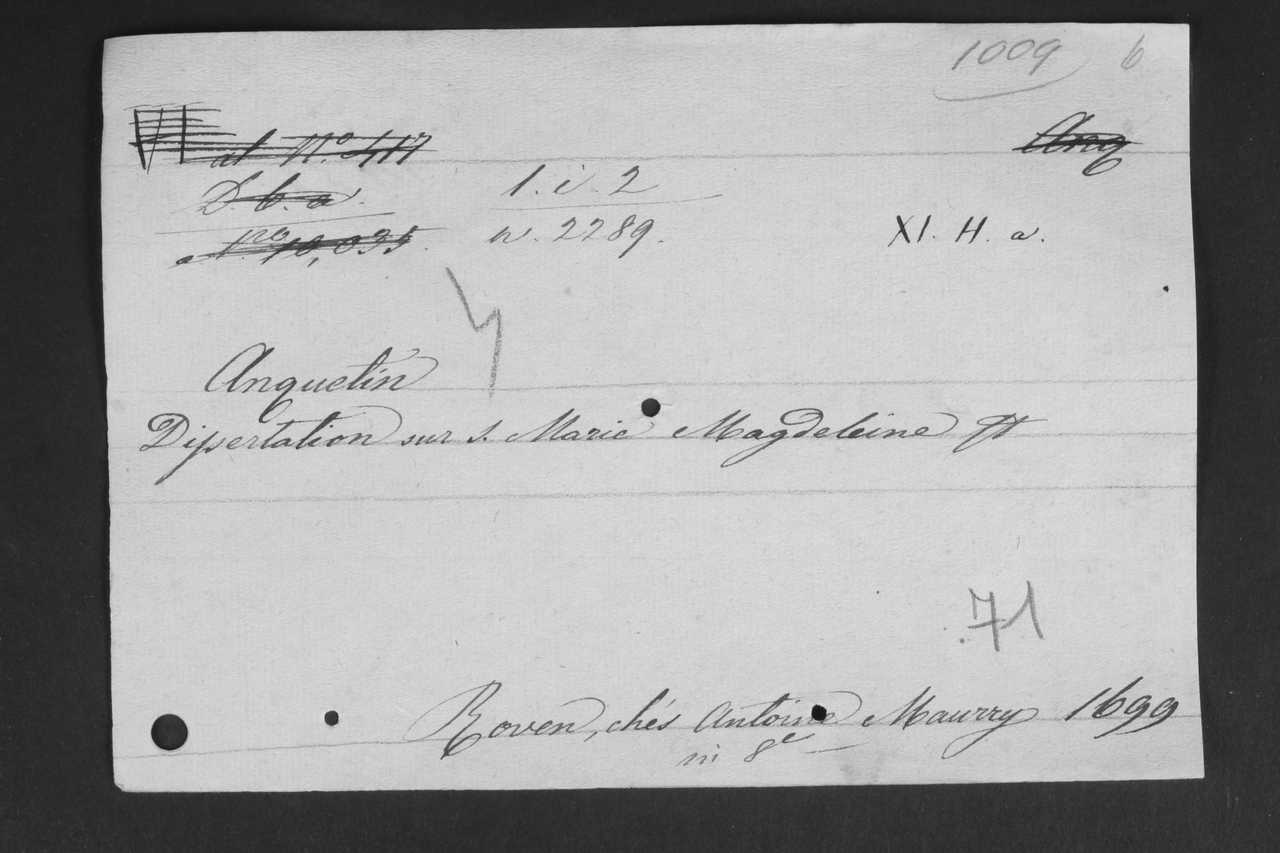 1009 6
Anq
ad No. 417
D. b. a. 1. i. 2
n. 2289. XI. H. a.
Anquetin
Dissertation sur s. Marie Magdeleine
71
Roven, chés Antoine Maurry 1699
in 8e